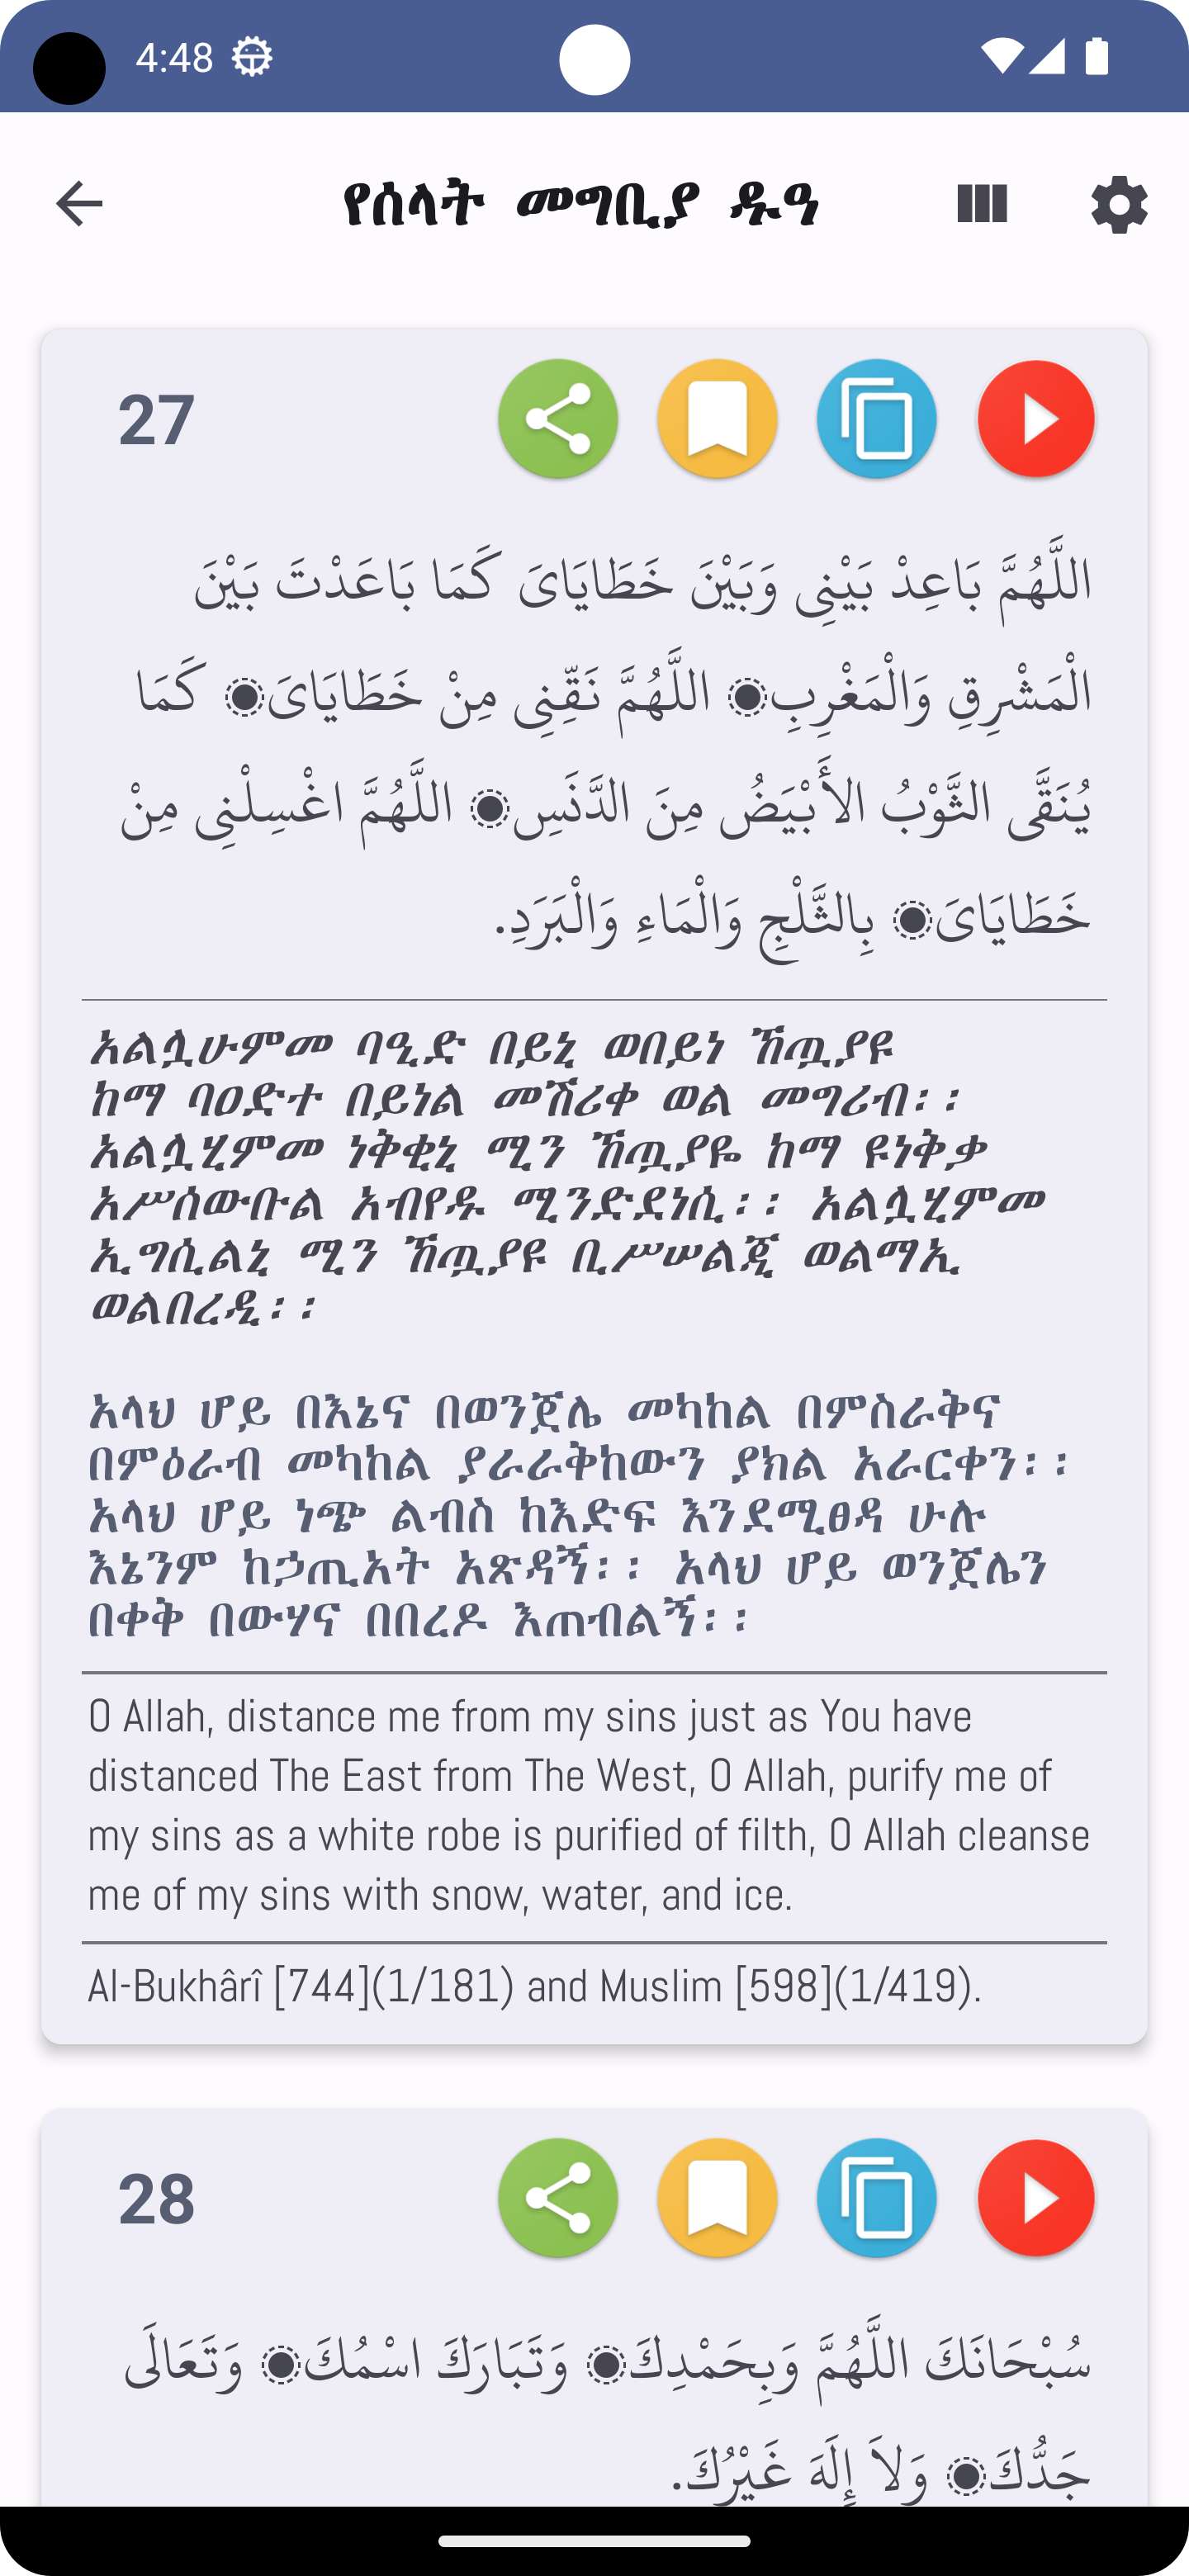 4:48
የሰላት መግቢያ ዱዓ
27
اللَّهُمَّ بَاعِدْ بَيْنِى وَبَيْنَ خَطَايَاىَ كَمَا بَاعَدْتَ بَيْنَ
الْمَشْرِقِ وَالْمَغْرِبِ۝ اللَّهُمَّ نَقِّنِى مِنْ خَطَايَاىَ۝ كَمَا
يُنَقَّى الثَّوْبُ الأَبْيَضُ مِنَ الدَّنَسِ۝ اللَّهُمَّ اغْسِلْنِى مِنْ
خَطَايَاىَ۝ بِالثَّلْجِ وَالْمَاءِ وَالْبَرَدِ.
አልሏሁምመ ባዒድ በይኒ ወበይነ ኸጧያዩ
ከማ ባዐድተ በይነል መሽሪቀ ወል መግሪብ፡፡
አልሏሂምመ ነቅቂኒ ሚን ኸጧያዬ ከማ ዩነቅቃ
አሥሰውቡል አብየዱ ሚንድደነሲ፡፡ አልሏሂምመ
ኢግሲልኒ ሚን ኸጧያዩ ቢሥሠልጂ ወልማኢ
ወልበረዲ፡፡
አላህ ሆይ በእኔና በወንጀሌ መካከል በምስራቅና
በምዕራብ መካከል ያራራቅከውን ያክል አራርቀን፡፡
አላህ ሆይ ነጭ ልብስ ከእድፍ እንደሚፀዳ ሁሉ
እኔንም ከኃጢአት አጽዳኝ፡፡ አላህ ሆይ ወንጀሌን
በቀቅ በውሃና በበረዶ እጠብልኝ፡፡
O Allah, distance me from my sins just as You have
distanced The East from The West, O Allah, purify me of
my sins as a white robe is purified of filth, O Allah cleanse
me of my sins with snow, water, and ice.
Al-Bukhârî [744](1/181) and Muslim [598](1/419).
28
سُبْحَانَكَ اللَّهُمَّ وَبِحَمْدِكَ۝ وَتَبَارَكَ اسْمُكَ۝ وَتَعَالَى
جَدُّكَ۝ وَلاَ إِلَهَ غَيْرُكَ.